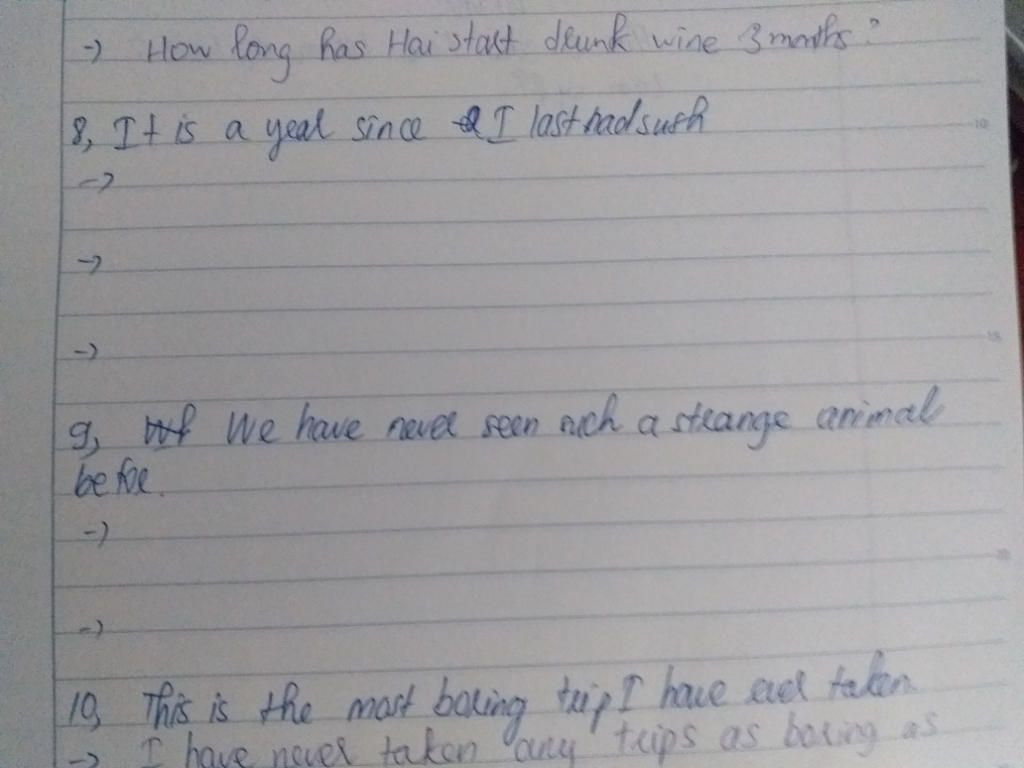 -> How long has Hai start drunk wine 3 months?
8, It is a year since I last had sush
->
->
->
9, We have never seen such a strange animal
before.
->
->
10, This is the most boring trip I have ever taken.
-> I have never taken any trips as boring as